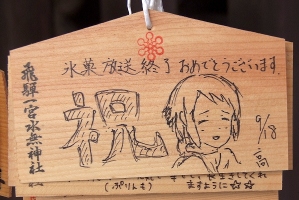 氷菓 放送 終了 おめでとうございます。
祝
9/18
高
飛騨一宮水無神社
ますように☆☆
(ぷりんも)